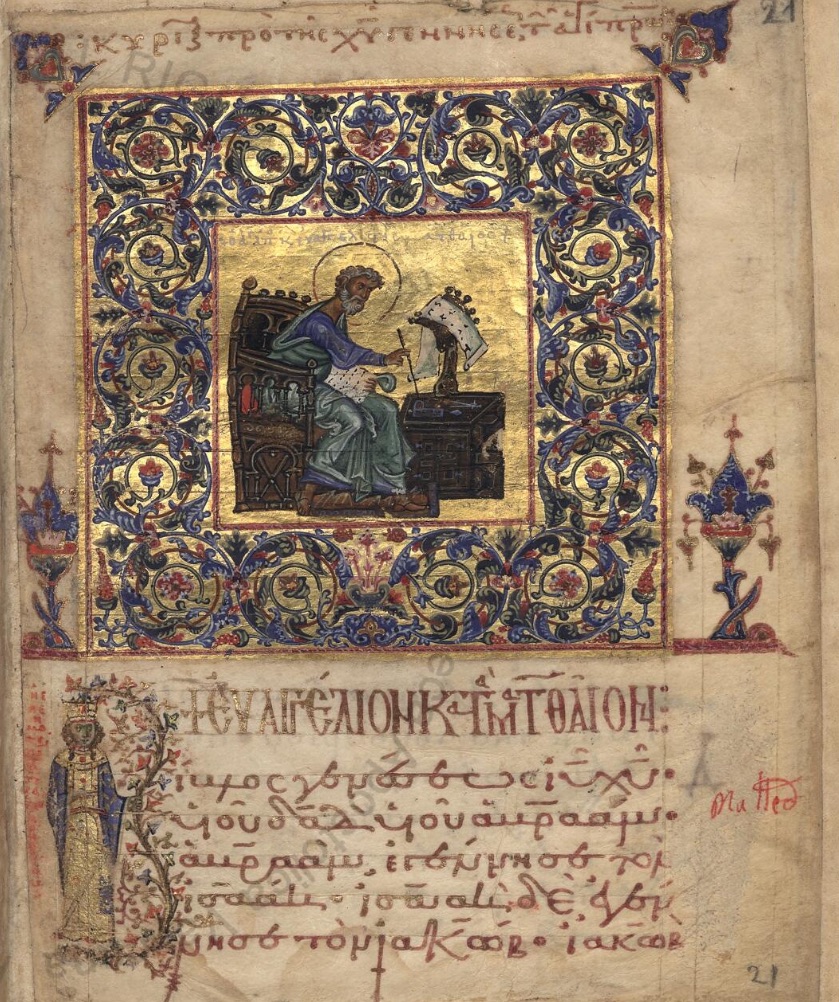 21
ΚΥΡΙ ΠΡὸ ΤῆC ΧΥ ΓΕΝΝΉCΕ,
+ ΕΥΑΓΓΈΛΙΟΝ ΚΑΤᾺ ΜΑΤΘΑΙΟΝ:
ίβλος γενέσεως ἰῦ χῦ·
υἱοῦ δαδ υἱοῦ ἀβραάμ·
ἀβραάμ, ἐγέννησε τὸν
ἰσαάκ· ἰσαὰκ δὲ ἐγέν
νησε τὸν ἰακώβ· ἰακὼβ
21